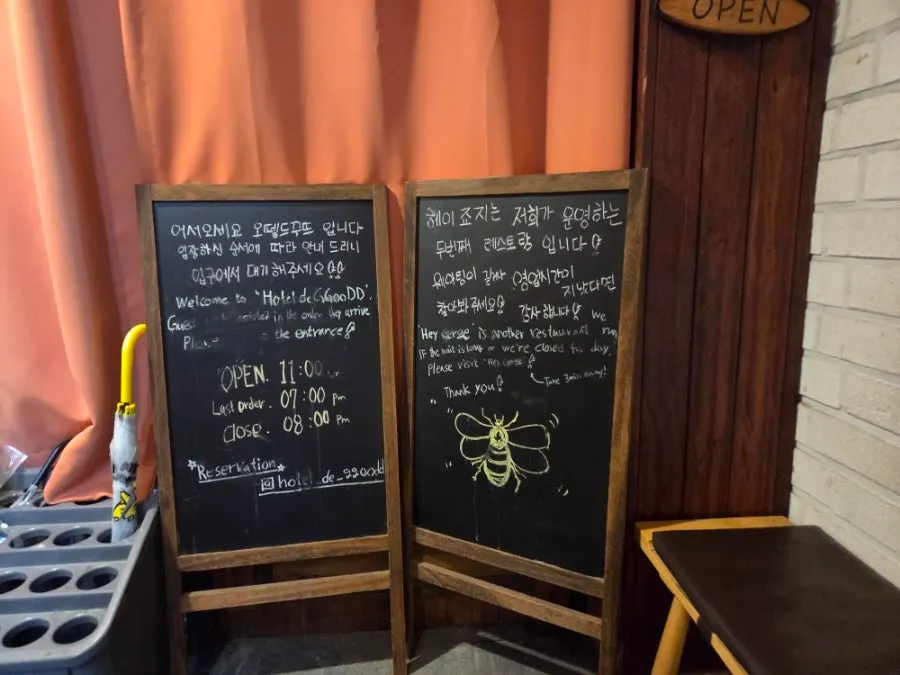 OPEN
어서오세요 오뗄드꾸뜨 입니다
입장하신 순서에 따라 안내 드리니
입구에서 대기해주세요!!
Welcome to "Hotel de GGooDD".
Guest in the order they arrive
the entrance!
OPEN. 11:00
Last order. 07:00 pm
close. 08:00 pm
*Reservation*
hotel_de_ggoodd
헤이죠지는 저희가 운영하는
두번째 레스토랑 입니다!
웨이팅이 길거나 영업시간이
지났다면
찾아봐주세요! 감사합니다!
we
"Hey is another restaurant run
IF the wait is long or we're closed for day.
Please visit "Hey
Take 3min away!
"Thank you!